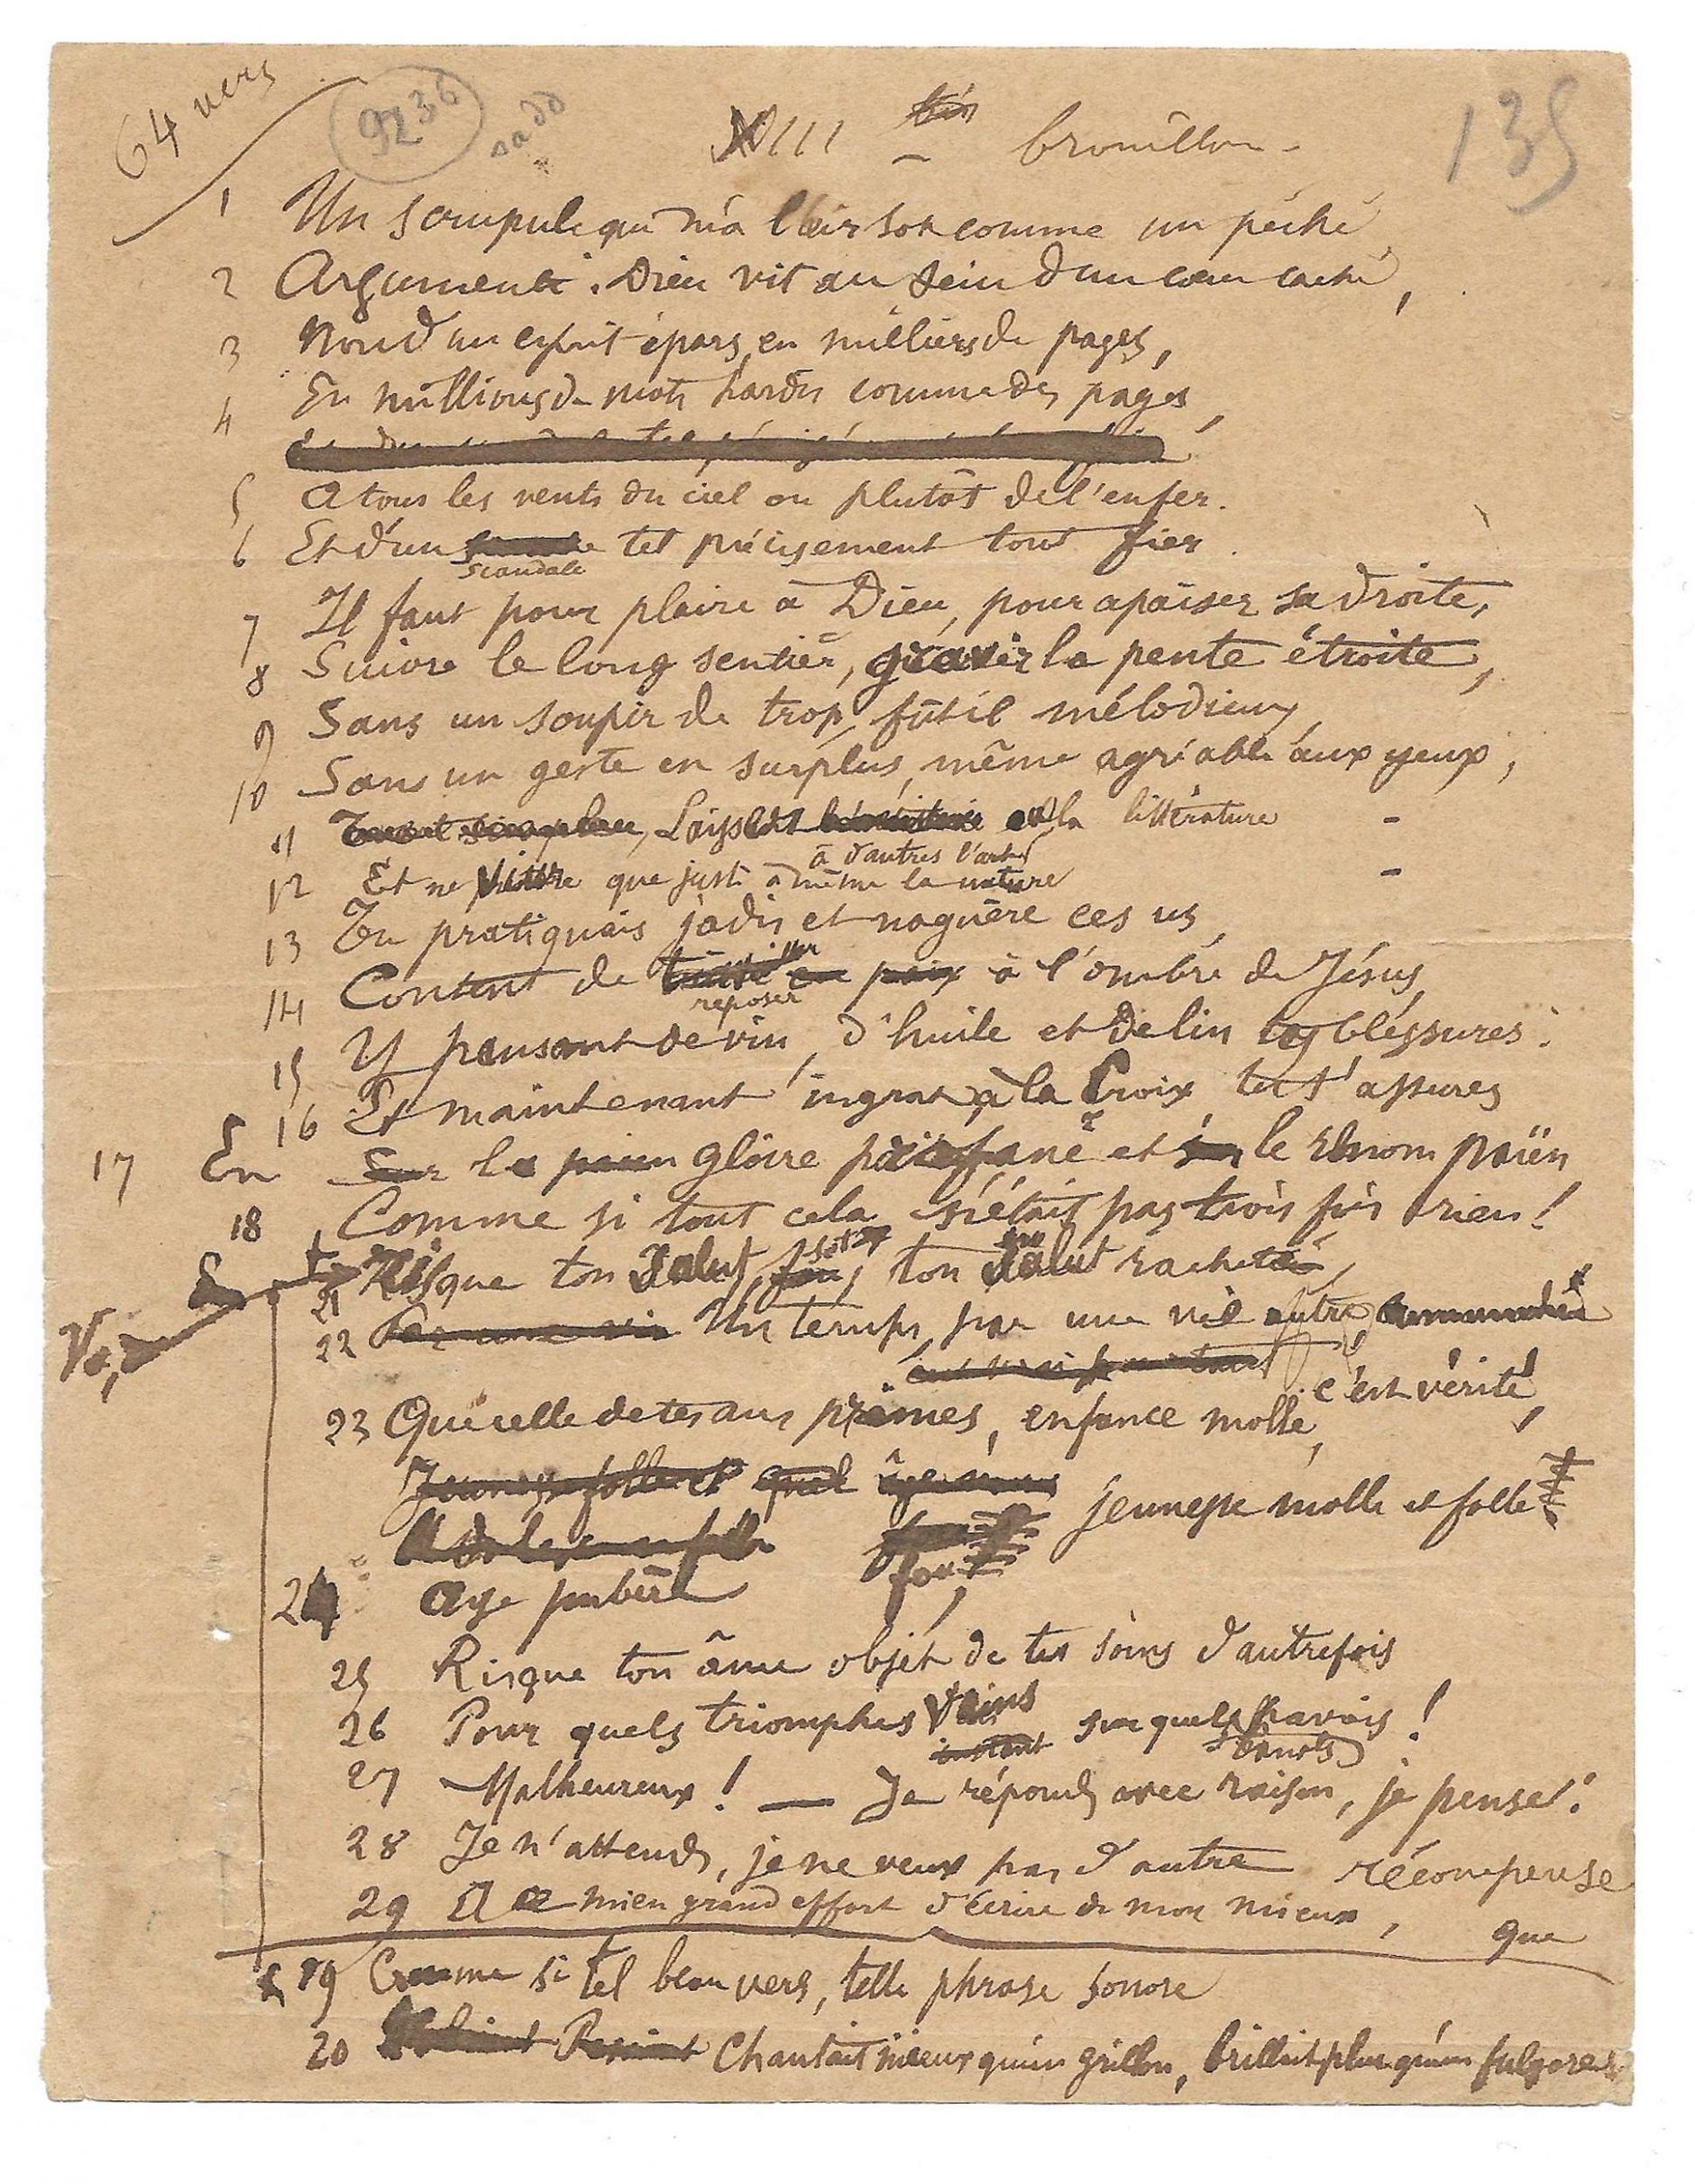 64 vers
9236
sadd
135
XVIII bis brouillon
1 Un scrupule qui m'a l'air sot comme un péché
2 Argumente. Dieu vit au sein d'un cœur caché,
3 Non d'un esprit épars, en milliers de pages,
4 En millions de mots hardis comme des pages,
5 A tous les vents du ciel ou plutôt de l'enfer.
6 Et d'un scandale tel précisément tout fier.
7 Il faut pour plaire à Dieu, pour apaiser sa droite,
8 Suivre le long sentier, gravir la pente étroite,
9 Sans un soupir de trop, fût-il mélodieux,
10 Sans un geste en surplus, même agréable aux yeux,
11 Laisser à d'autres l'art et la littérature
12 Et ne vivre que juste à même la nature
13 Tu pratiquais jadis et naguère ces us,
14 Content de reposer à l'ombre de Jésus,
15 Y pansant de vin, d'huile et de lin tes blessures.
16 Et maintenant, ingrat à la Croix, tu t'assures
17 En la gloire profane et le renom païen
18 Comme si tout cela n'était pas trois fois rien!
21 Risque ton salut, ton salut racheté
22 Un temps, par une vie autre, c'est vérité,
23 Que celle de tes ans primes, enfance molle,
24 Age pubère fou, jeunesse molle et folle
25 Risque ton âme objet de tes soins d'autrefois
26 Pour quels triomphes vains sur quels banals pavois!
27 Malheureux! — Je réponds avec raison, je pense:
28 Je n'attends, je ne veux pas d'autre récompense
29 A ce mien grand effort d'écrire de mon mieux, que
19 Comme si tel beau vers, telle phrase sonore
20 Chantait mieux qu'un grillon, brillait plus qu'un fulgore